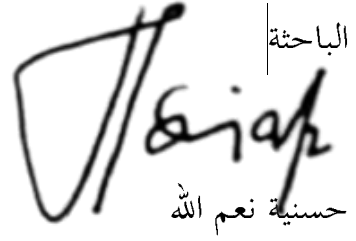 الباحثة
حسنية نعم الله